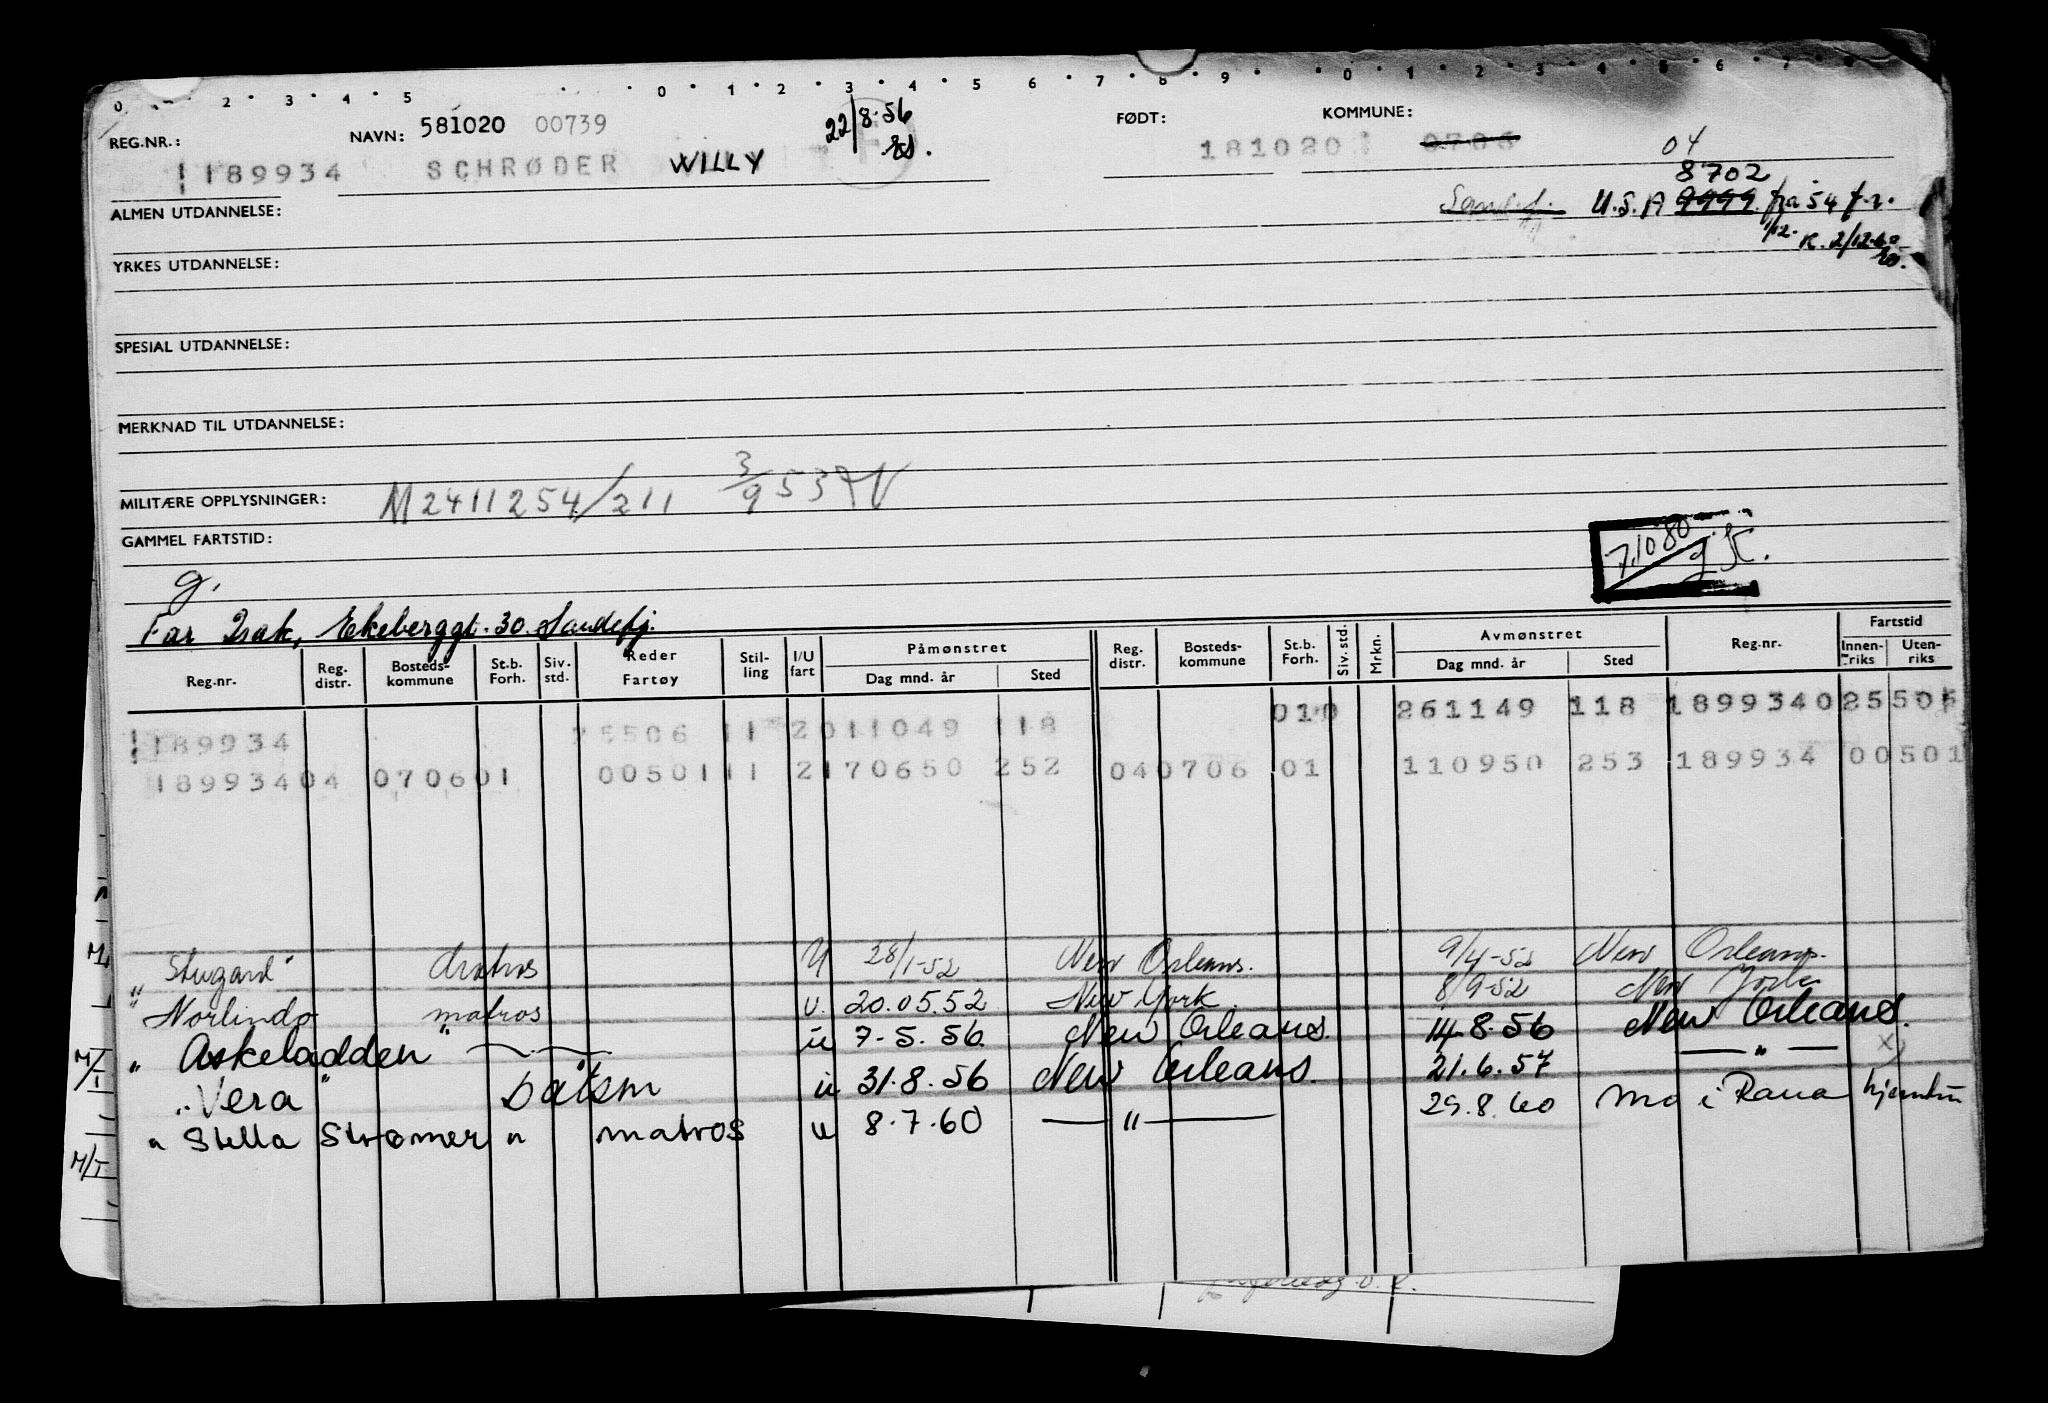 0 2 3 4 5 0 1 2 3 4 5 6 7 8 9 0 1 2 3 4 5 6 7
REG.NR.: NAVN: 581020 00739 22/8·56 FØDT: KOMMUNE:
189934 SCHRØDER WILLY 181020 0706 04
8702
ALMEN UTDANNELSE: U.S.A 9999 fra 54
1/12. K. 2/12-60
YRKES UTDANNELSE:
SPESIAL UTDANNELSE:
MERKNAD TIL UTDANNELSE:
MILITÆRE OPPLYSNINGER: M2411254/211 3/9 53
GAMMEL FARTSTID: 7.1080
g.
Far Isak, Ekeberggt. 30. Sandefj.
Reg.nr. Reg. distr. Bosteds- kommune St.b. Forh. Siv. std. Reder Fartøy Stil- ling I/U fart Påmønstret Dag mnd. år Sted Reg. distr. Bosteds- kommune St.b. Forh. Siv. std. Mrkn. Avmønstret Dag mnd. år Sted Reg.nr. Fartstid Innen- riks Uten- riks
189934 25506 11 2011049 118 010 261149 118 1899340 25 505
189934 04 0706 01 00501 11 2170650 252 04 0706 01 110950 253 189934 00501
"Stugard" matros U 28/1-52 New Orleans. 9/4-52 New Orleans.
"Norlindo matros u. 20.05.52 New York. 8/9-52 New York
" Askeladden " u 7-5.56. New Orleans. 14.8.56 New Orleans.
"Vera" Båtsm u 31.8.56 New Orleans. 21.6.57 — " — x)
" Stella Strømer " matros u 8.7.60 — " — 29.8.60 Mo i Rana
M/T
M/T